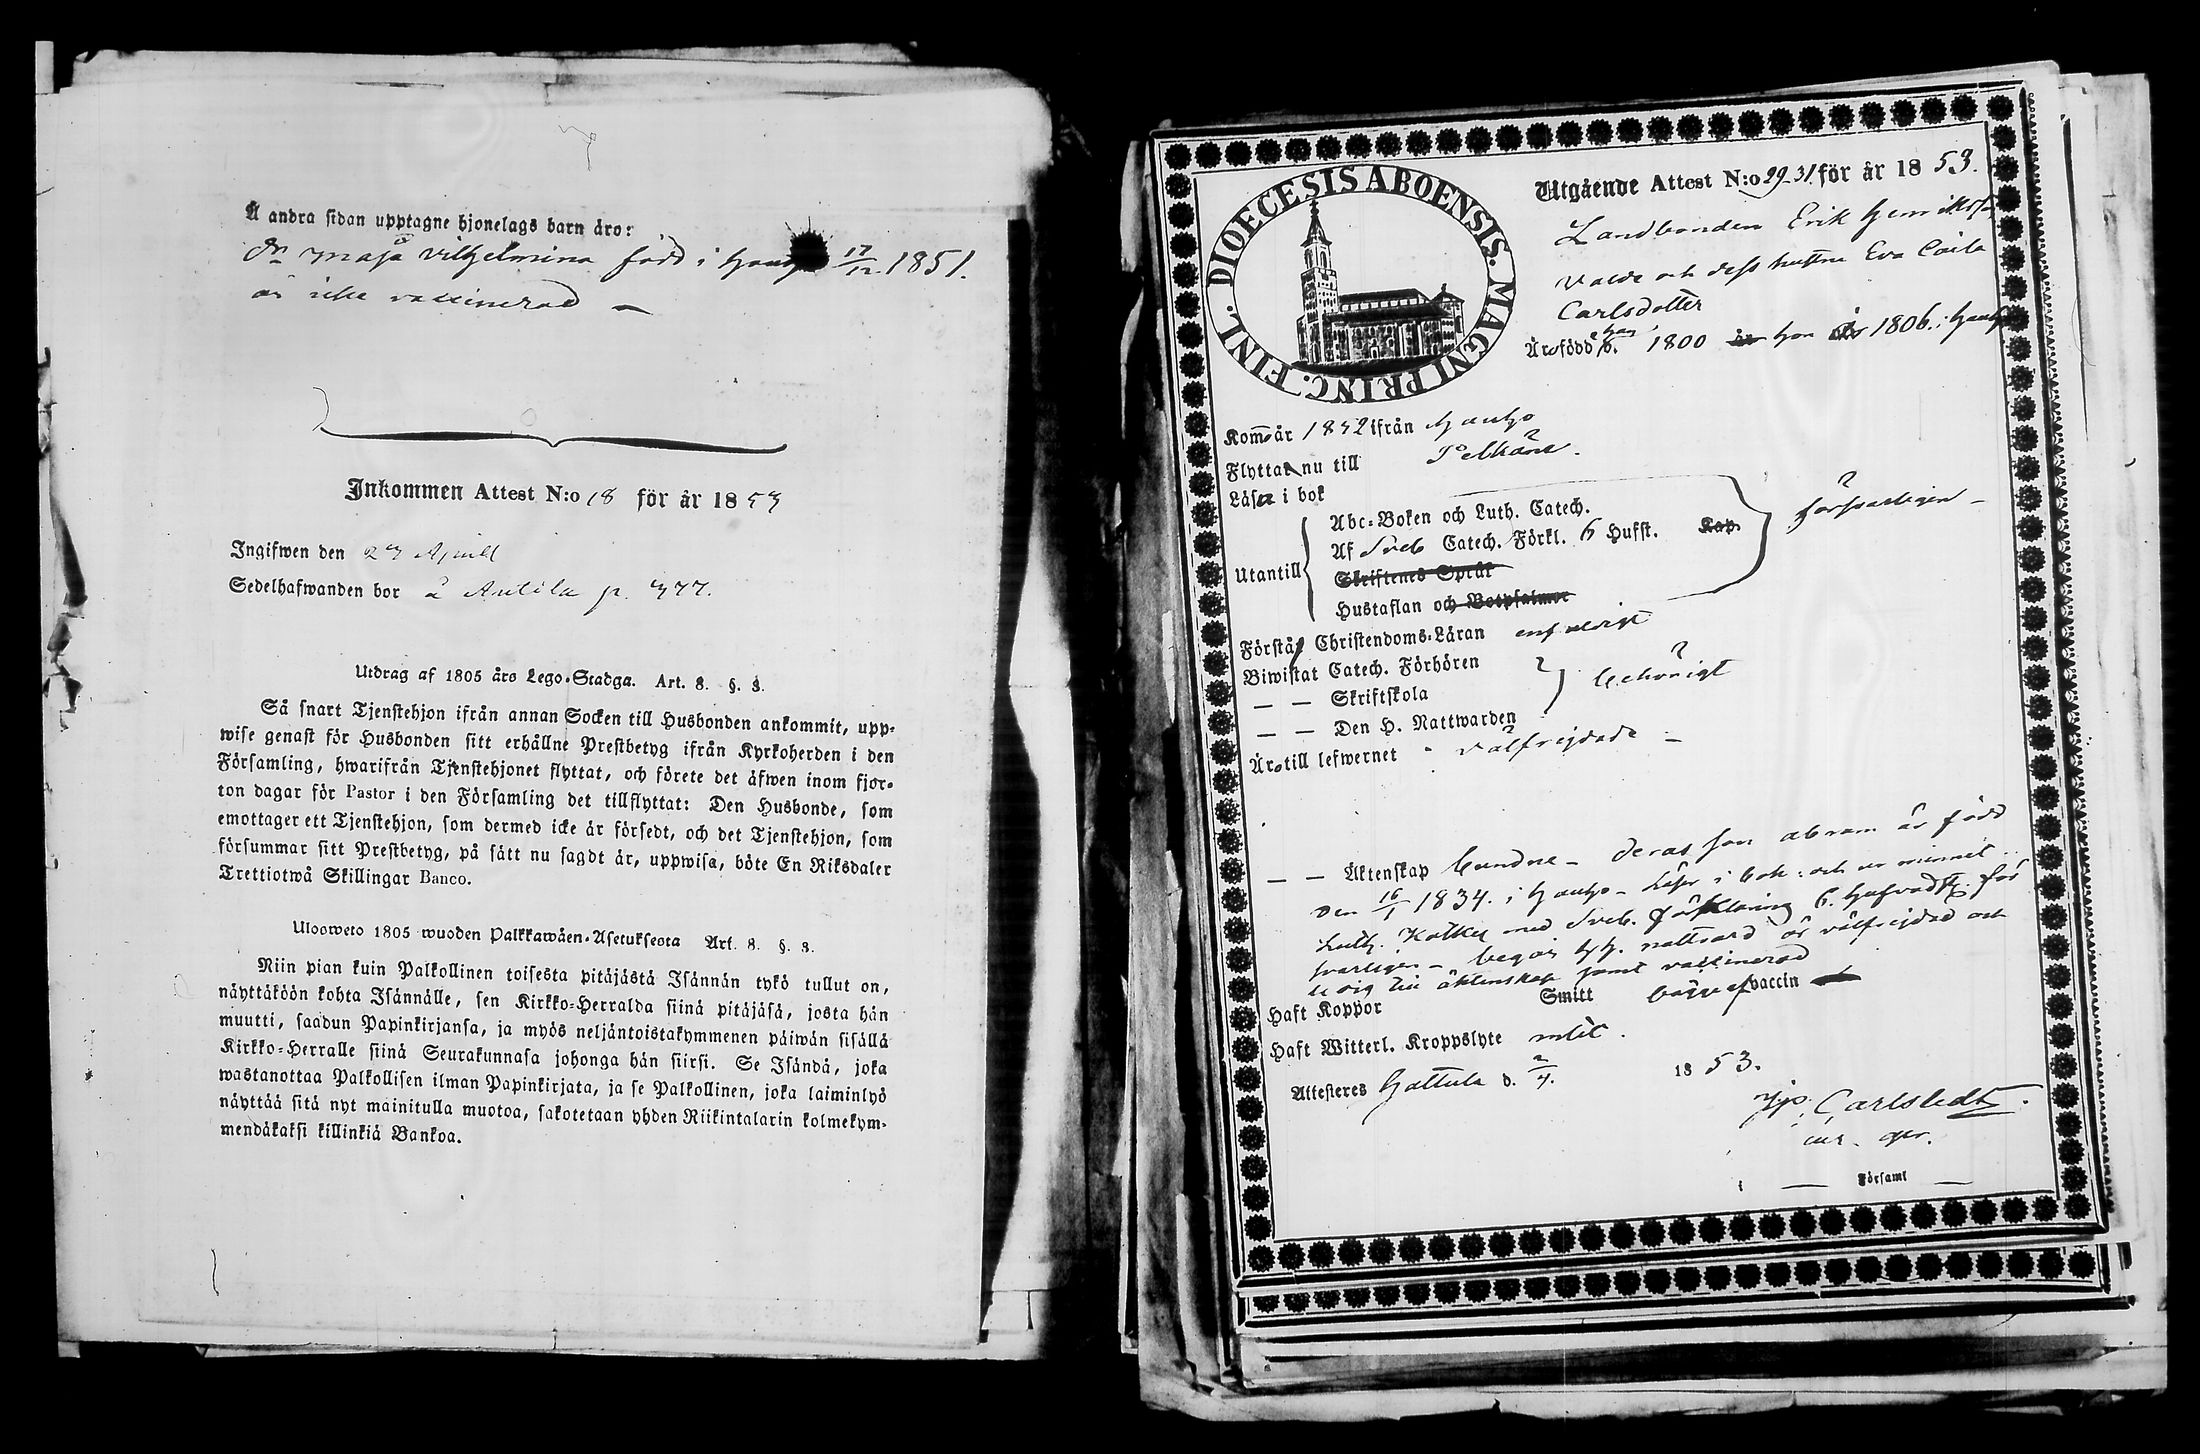 Å andra sidan upptagne hjonelags barn äro:
Dr Maja Vilhelmina född i Hauho 17/12 1851.
är icke vaccinerad –
Inkommen Attest N:o 18 för år 1853
Ingifwen den 23 April
Sedelhafwanden bor å Antila p. 377.
Utdrag af 1805 års Lego-Stadga. Art. 8. §. 3.
Så snart Tjenstehjon ifrån annan Socken till Husbonden ankommit, upp-
wise genast för Husbonden sitt erhållne Prestbetyg ifrån Kyrkoherden i den
Församling, hwarifrån Tjenstehjonet flyttat, och förete det äfwen inom fjor-
ton dagar för Pastor i den Församling det tillflyttat: Den Husbonde, som
emottager ett Tjenstehjon, som dermed icke är försedt, och det Tjenstehjon, som
försummar sitt Prestbetyg, på sätt nu sagdt är, uppwisa, böte En Riksdaler
Trettiotwå Skillingar Banco.
Ulosweto 1805 wuoden Palkkawäen-Asetuksesta Art. 8. §. 3.
Niin pian kuin Palkollinen toisesta pitäjästä Isännän tykö tullut on,
näyttäköön kohta Isännälle, sen Kirkko-Herralda siinä pitäjäsä, josta hän
muutti, saadun Papinkirjansa, ja myös neljäntoistakymmenen päiwän sisällä
Kirkko-Herralle siinä Seurakunnasa johonga hän siirsi. Se Isändä, joka
wastanottaa Palkollisen ilman Papinkirjata, ja se Palkollinen, joka laiminlyö
näyttää sitä nyt mainitulla muotoa, sakotetaan yhden Riikintalarin kolmekym-
mendäkaksi killinkiä Bankoa.
DIOECESIS ABOENSIS. MAGNI PRINC. FINL.
Utgående Attest N:o 29-31 för år 1853.
Landbonden Erik Henriksson
Valde och dess hustru Eva Caisa
Carlsdotter
Äro född han 1800 hon 1806 i Hauho
Kom år 1832 ifrån Hauho
Flyttar nu till Pelkäne.
Läsa i bok
Utantill
Abc-Boken och Luth. Catech.
Af Sveb Catech. Förkl. 6 Hufst. Kap.
Skriftenes Språk
Hustaflan och Botpsalmer
försvarligen –
Förstå Christendoms-Läran enfaldigt
Biwistat Catech. Förhören
— — Skriftskola
— — Den H. Nattwarden
behörigt
Äro till lefwernet välfrejdade –
— — Äktenskap bundne – deras son Abram är född
den 16/1 1834. i Hauho – Läser i bok: och ur minnet
Luth. Katkes med Sveb. förklaring 6. Hufvudst. för
svarligen – begår H. H. nattvard är välfrejdad och
ledig till äktenskap samt vaccinerad
Haft Koppor Smitt bägge af vaccin
Haft Witterl. Kroppslyte intet.
Attesteres Hattula d. 2/4. 1853.
Carlstedt.
Församl